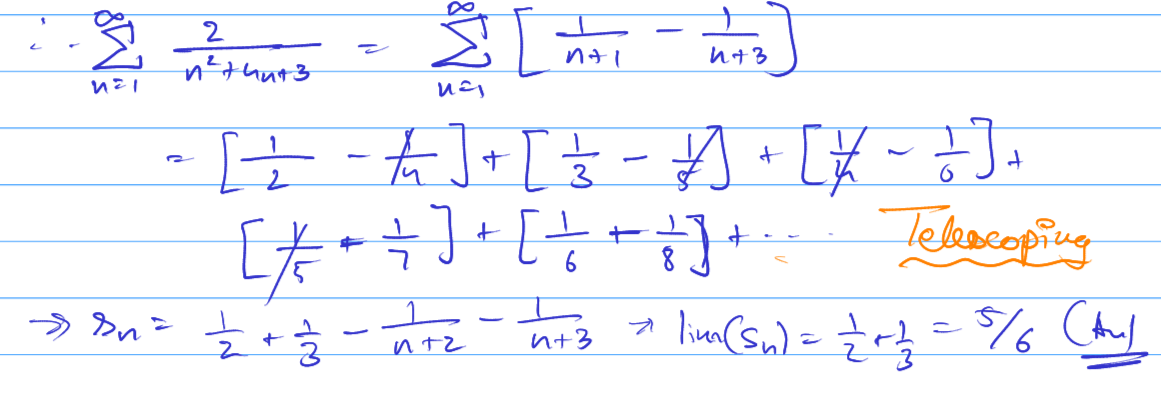 ∴ ∑_{n=1}^{∞} 2/(n²+4n+3) = ∑_{n=1}^{∞} [1/(n+1) − 1/(n+3)]
= [1/2 − 1/4] + [1/3 − 1/5] + [1/4 − 1/6] +
[1/5 + 1/7] + [1/6 + 1/8] + ... Telescoping
⇒ Sn = 1/2 + 1/3 − 1/(n+2) − 1/(n+3) → lim(Sn) = 1/2 + 1/3 = 5/6 (Ans)